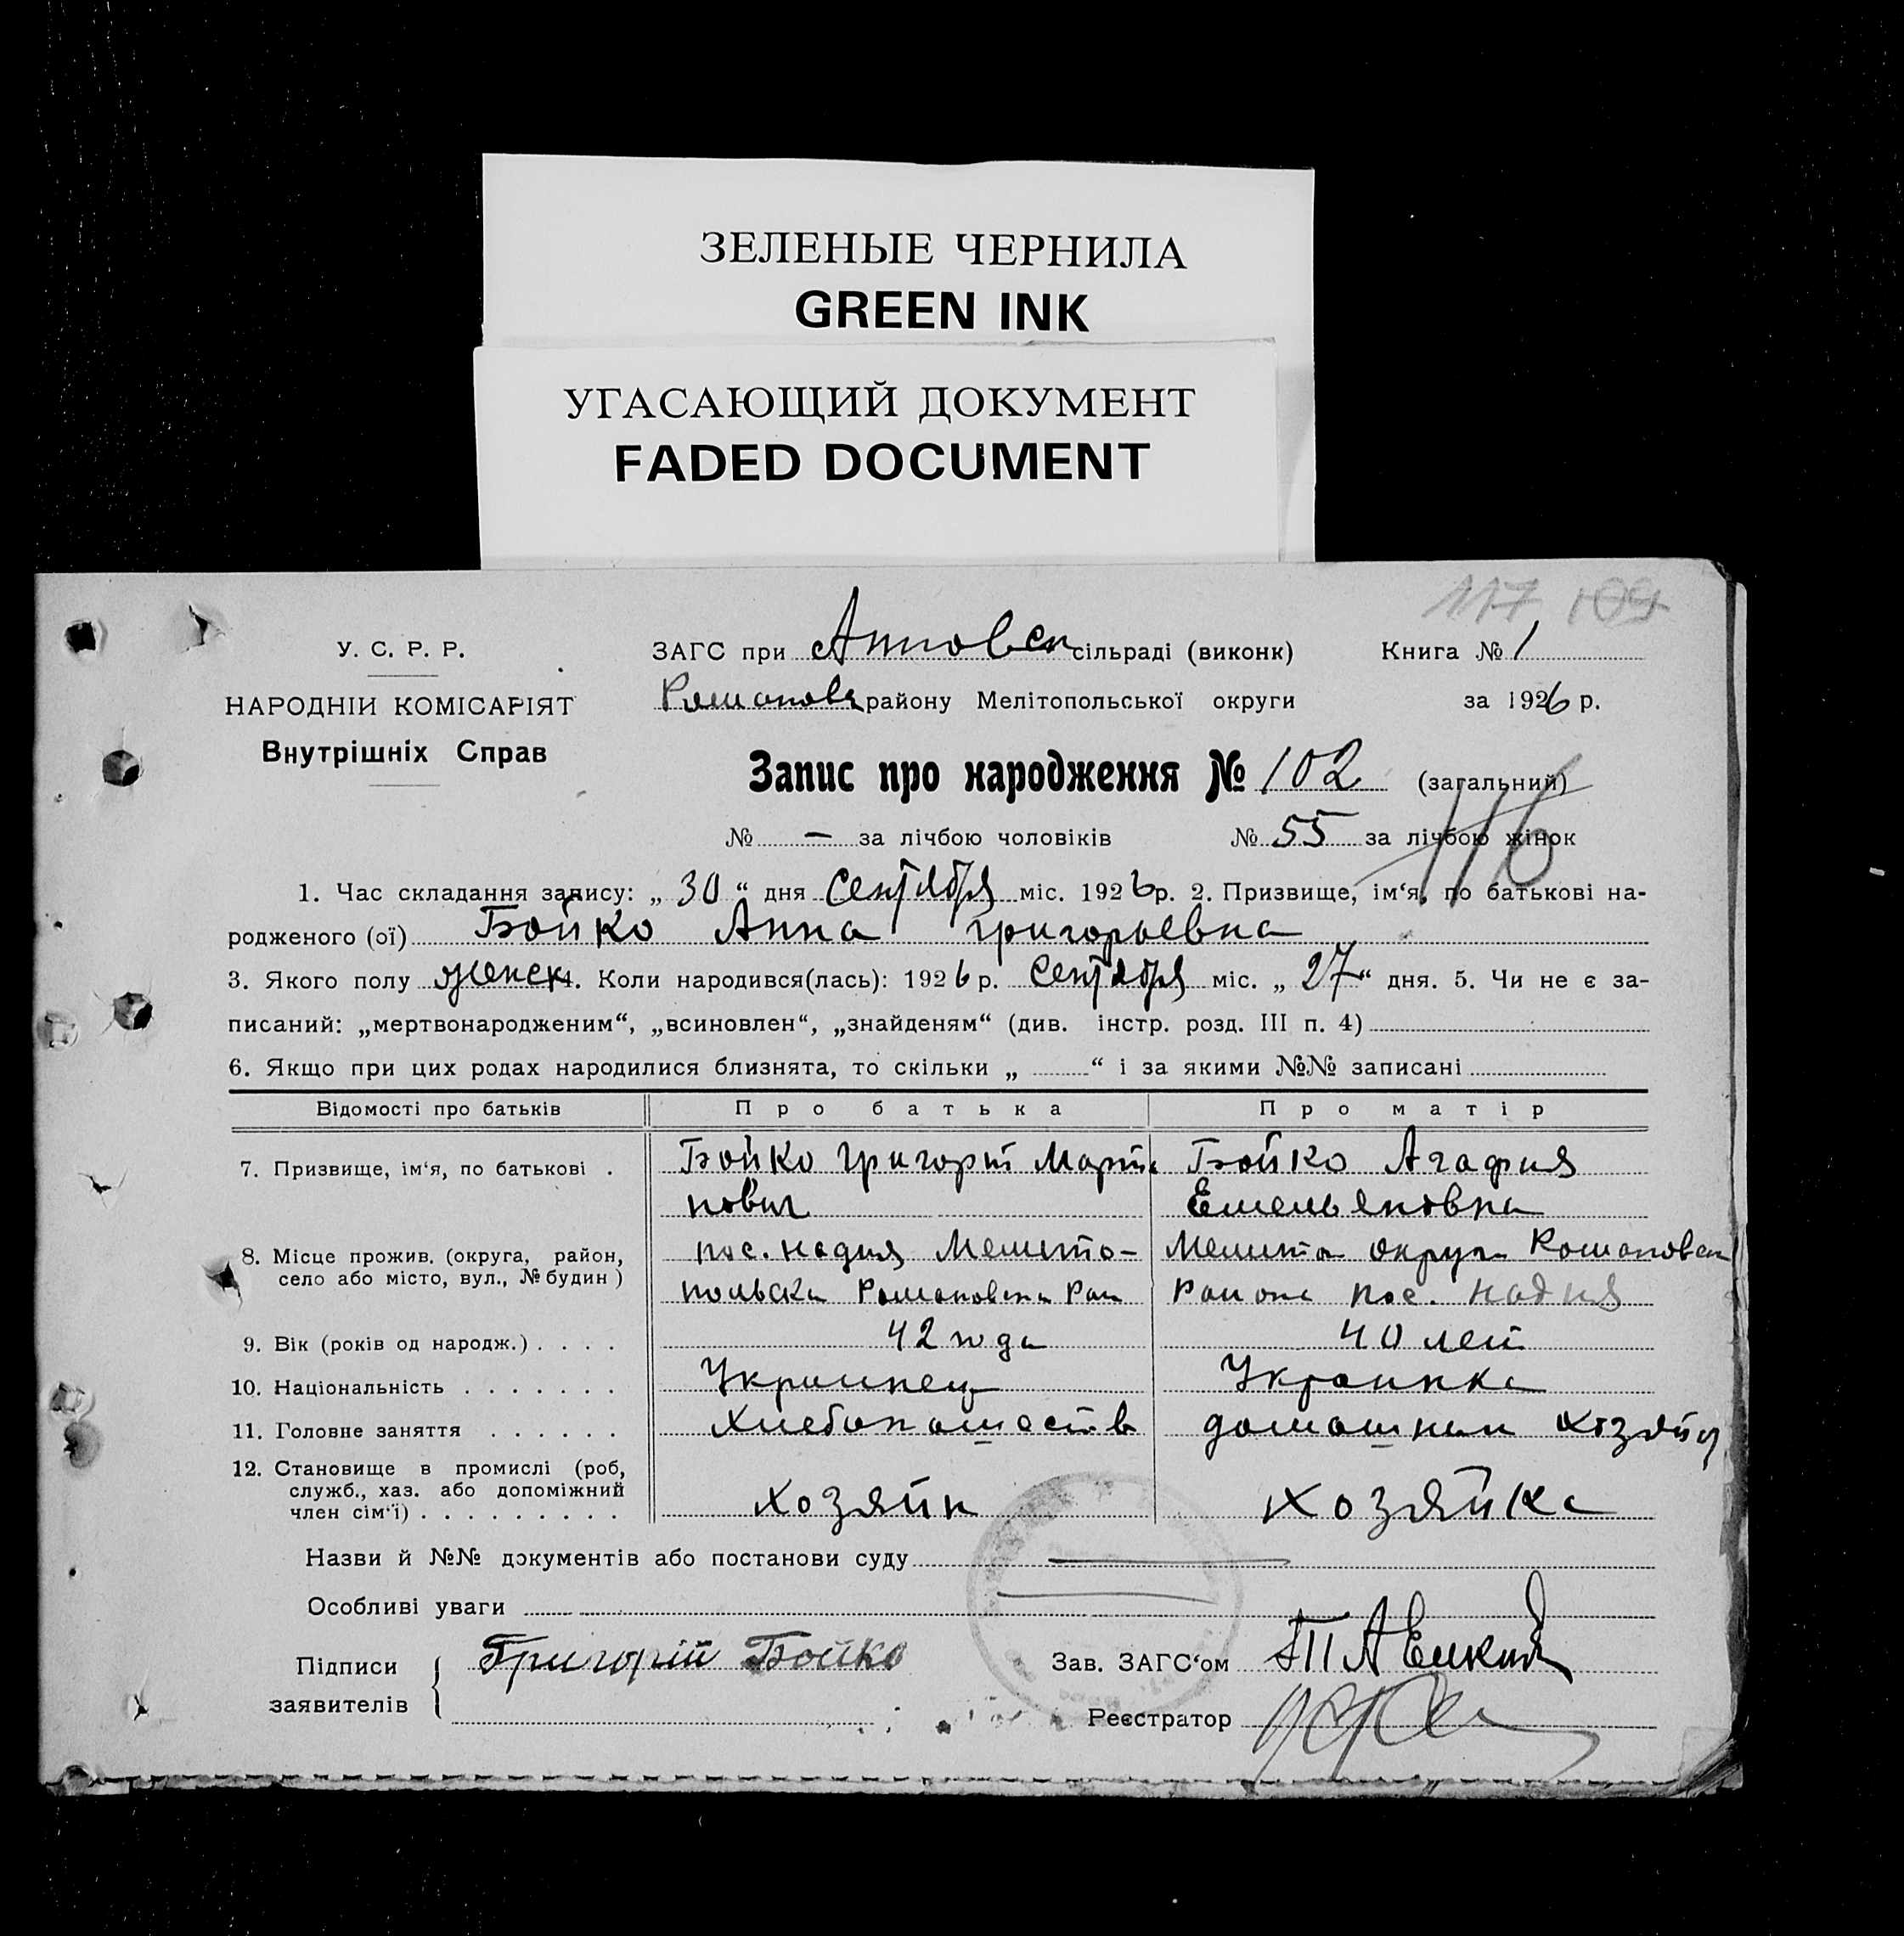 ЗЕЛЕНЫЕ ЧЕРНИЛА
GREEN INK
УГАСАЮЩИЙ ДОКУМЕНТ
FADED DOCUMENT
117 109
У. С. Р. Р.
НАРОДНІЙ КОМІСАРІЯТ
Внутрішніх Справ
ЗАГС при Анновск сільраді (виконк) Книга № 1
Романовск району Мелітопольської округи за 1926 р.
Запис про народження № 102 (загальний)
116
№ — за лічбою чоловіків № 55 за лічбою жінок
1. Час складання запису: „ 30 “ дня Сентября міс. 1926 р. 2. Призвище, ім‘я, по батькові на-
родженого (ої) Бойко Анна Григорьевна
3. Якого полу женск 4. Коли народився(лась): 1926 р. Сентября міс. „ 27 “ дня. 5. Чи не є за-
писаний: „мертвонародженим“, „всиновлен“, „знайденям“ (див. інстр. розд. III п. 4)
6. Якщо при цих родах народилися близнята, то скільки „ “ і за якими №№ записані
Відомості про батьків Про батька Про матір
7. Призвище, ім‘я, по батькові . Бойко Григорий Марти Бойко Агафия
нович Емельяновна
8. Місце прожив. (округа, район, пос. Надия Мелито- Мелито округа Романовск
село або місто, вул., № будин ) польска Романовска Рай Района пос. Надия
9. Вік (років од народж.) . . . . 42 года 40 лет
10. Національність . . . . . . . Украинец Украинка
11. Головне заняття . . . . . . Хлебопашеств домашним хозяйс
12. Становище в промислі (роб,
служб., хаз. або допоміжний
член сім‘ї) . . . . . . . . . хозяйн хозяйка
Назви й №№ документів або постанови суду —
Особливі уваги —
Підписи Григорій Бойко Зав. ЗАГС‘ом
заявителів Реєстратор